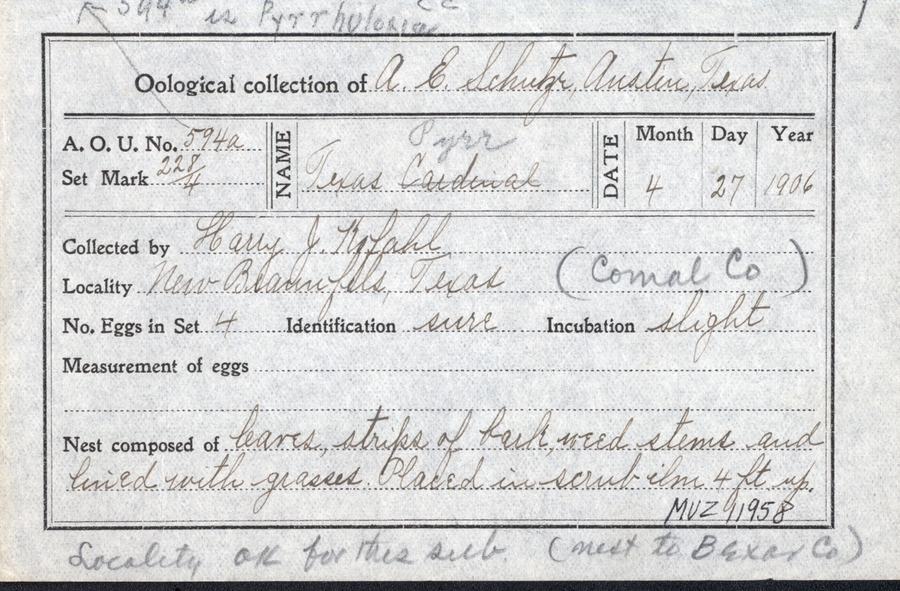 594 is Pyrrhuloxia
Oological collection of A. E. Schutze, Austin, Texas
A. O. U. No. 594a
Set Mark 228/4
NAME
Pyrr
Texas Cardinal
DATE
Month Day Year
4 27 1906
Collected by Harry J. Kofahl
Locality New Braunfels, Texas (Comal Co)
No. Eggs in Set 4 Identification sure Incubation slight
Measurement of eggs
Nest composed of leaves, strips of bark, weed stems and
lined with grasses. Placed in scrub elm 4 ft. up.
MVZ 11958
Locality OK for this sub. (next to Bexar Co)